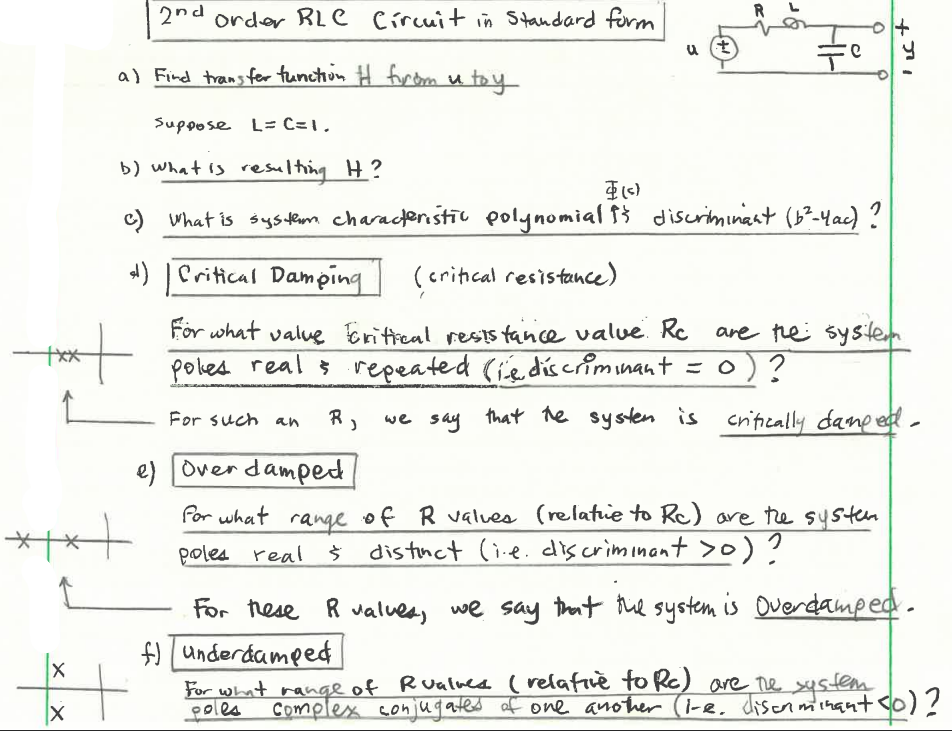 2nd order RLC Circuit in Standard form
R L
u ± C + y -
a) Find transfer function H from u to y
suppose L=C=1.
b) what is resulting H?
Φ(s)
c) What is system characteristic polynomial ↑'s discriminant (b²-4ac)?
d) Critical Damping (critical resistance)
For what value critical resistance value Rc are the system
poles real & repeated (i.e. discriminant = 0)?
For such an R, we say that the system is critically damped.
e) Overdamped
For what range of R values (relative to Rc) are the system
poles real & distinct (i.e. discriminant >0)?
For these R values, we say that the system is Overdamped.
f) Underdamped
For what range of R values (relative to Rc) are the system
poles complex conjugates of one another (i-e. discriminant <0)?